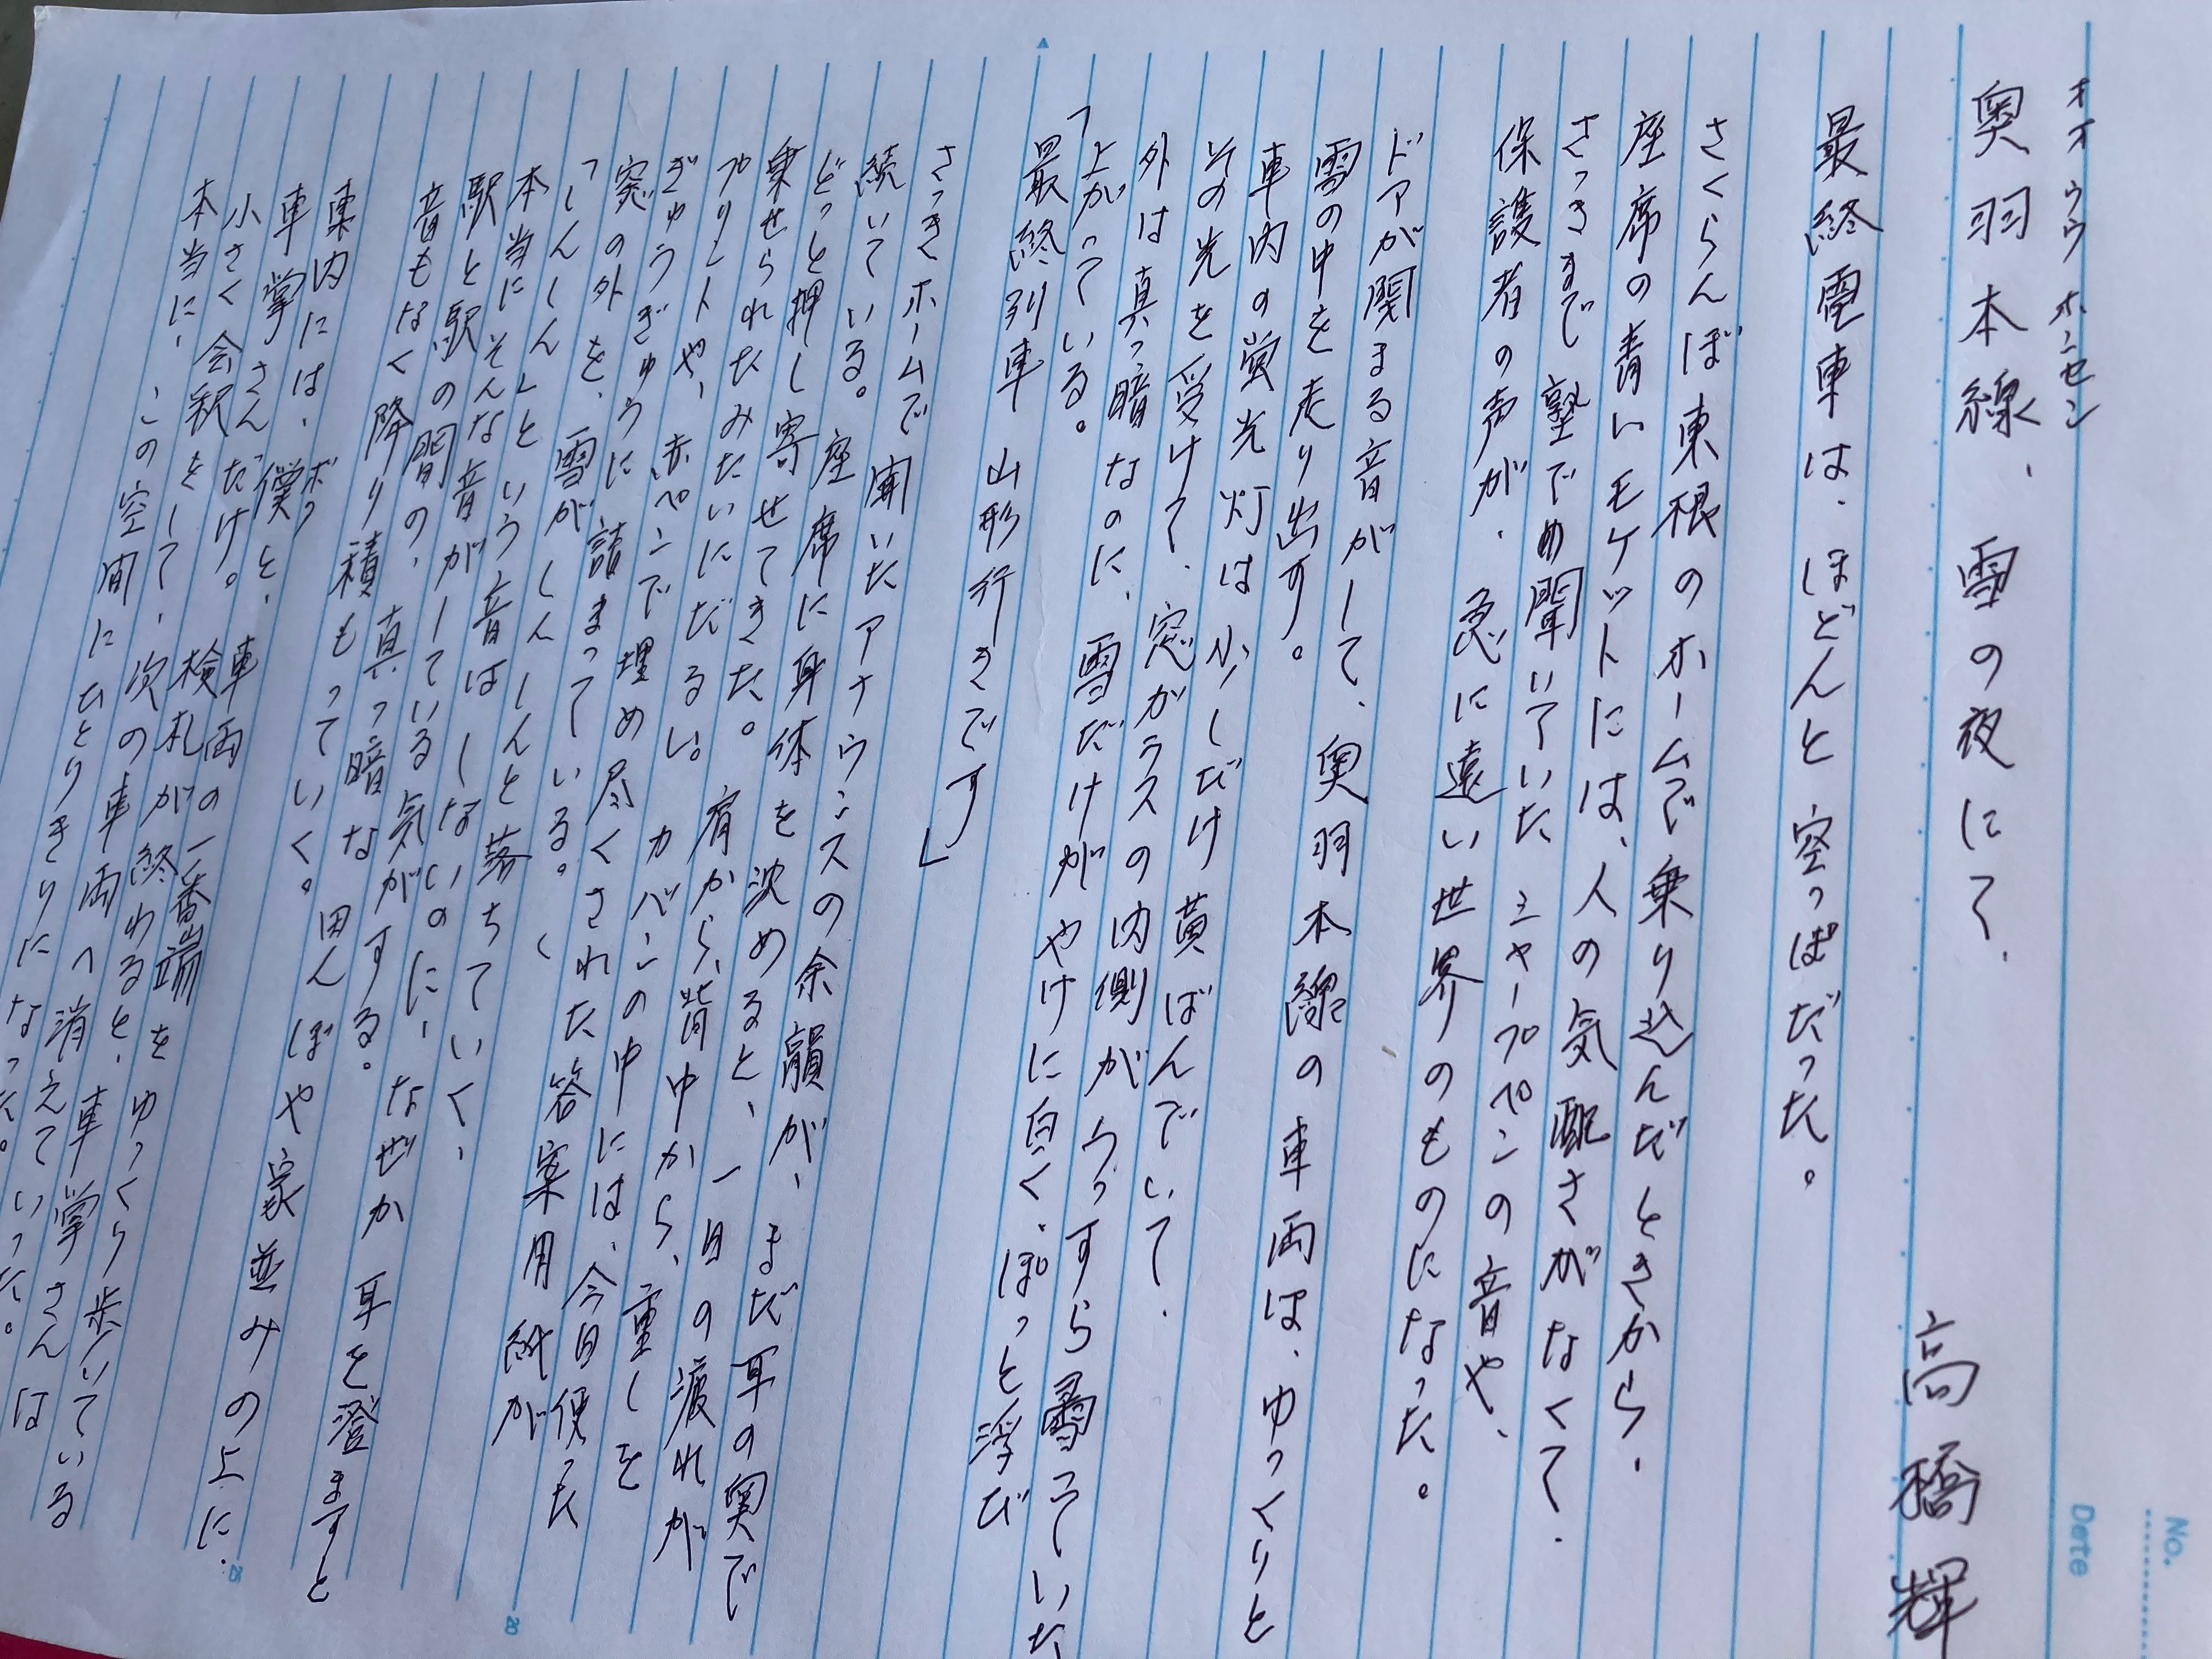 オオウウホンセン
奥羽本線、雪の夜にて、
高橋輝
最終電車は、ほどんと空っぽだった。
さくらんぼ東根のホームで乗り込んだときから、
座席の青いモケットには、人の気配さがなくて、
さっきまで塾でめ聞いていたシャープペンの音や、
保護者の声が、急に遠い世界のものになった。
ドアが閉まる音がして、奥羽本線の車両は、ゆっくりと
雪の中を走り出す。
車内の蛍光灯は少しだけ黄ばんでいて、
その光を受けて、窓ガラスの内側がうっすら曇っていた
外は真っ暗なのに、雪だけがやけに白く、ぽっと浮び
上がっている。
「最終列車 山形行きです」
さっきホームで聞いたアナウンスの余韻が、まだ耳の奥で
続いている。座席に身体を沈めると、一日の疲れが
どっと押し寄せてきた。肩から、背中から、重しを
乗せられたみたいにだるい。カバンの中には、今日使った
プリントや、赤ペンで埋め尽くされた答案用紙が
ぎゅうぎゅうに詰まっている。
窓の外を、雪がしんしんと落ちていく、
「しんしん」という音はしないのに、なぜか耳を澄ますと
本当にそんな音がしている気がする。
駅と駅の間の、真っ暗な田んぼや家並みの上に、
音もなく降り積もっていく。
車内には、僕と、車両の一番端をゆっくり歩いている
ボク
車掌さんだけ。検札が終わると、車掌さんは
小さく会釈をして、次の車両へ消えていった。
本当に、この空間にひとりきりになった。
No.
Date
20
25